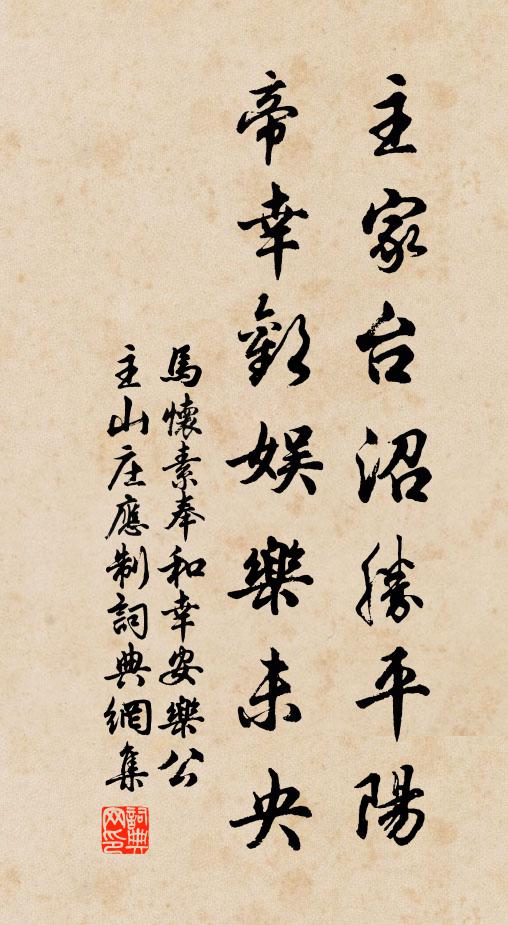 主家台沼勝平陽
帝幸歡娛樂未央
馬懷素奉和幸安樂公
主山庄應制詞典網集
詞典
网印